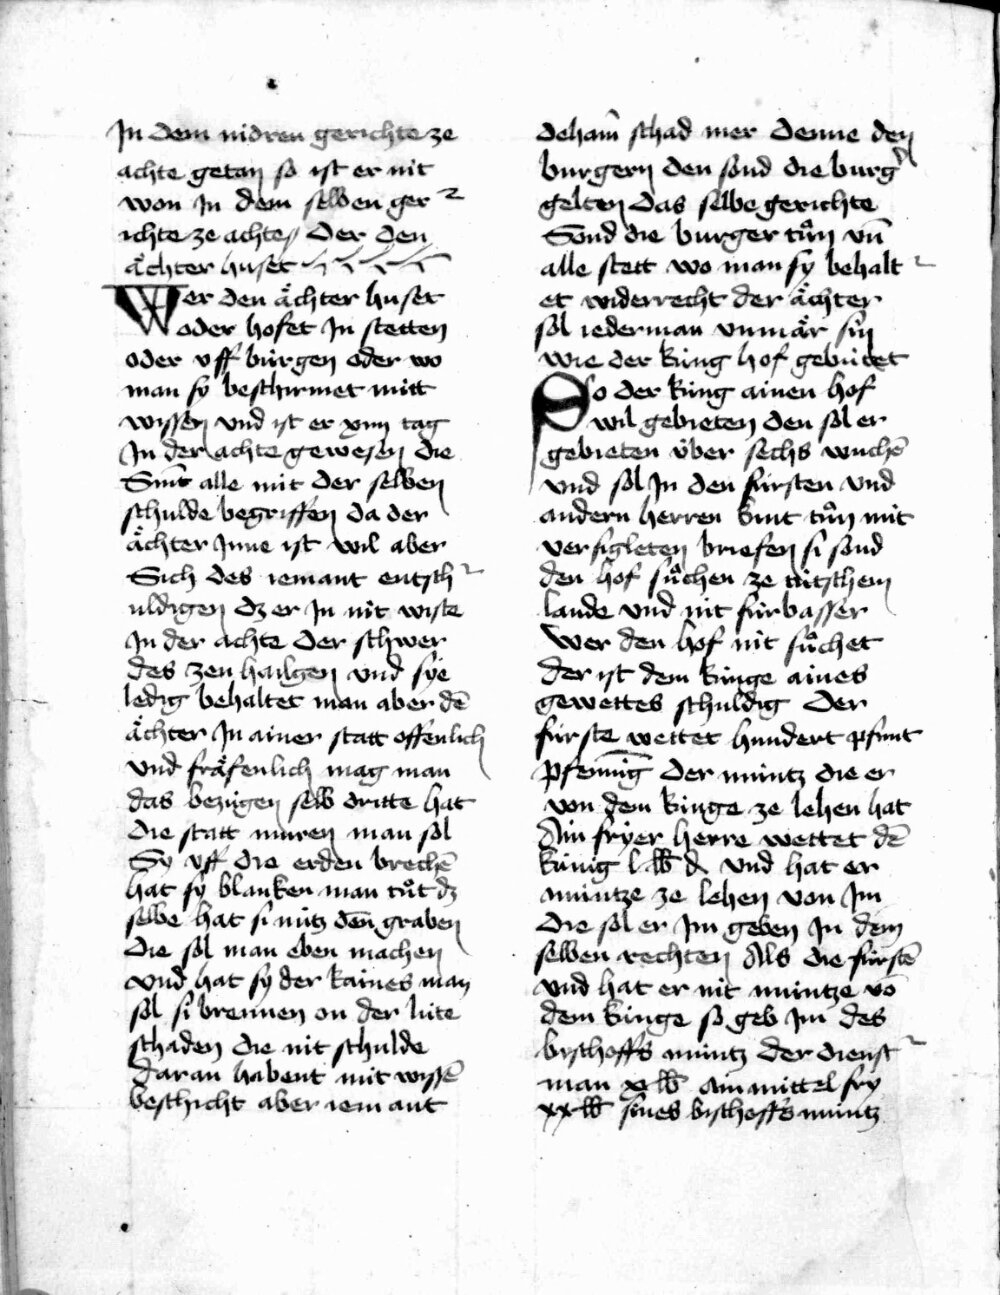 In dem nidren gerichte ze
achte getan so ist er nit
won In dem selben ger
ichte ze achte / Der den
ächter huset
Wer den ächter huset
oder hofet In stetten
oder vff burgen oder wo
man sy beschirmet mitt
wissen vnd ist er xiiij tag
In der achte gewesen die
Sint alle mit der selben
schulde begriffen da der
ächter Inne ist wil aber
Sich des iemant entsch
uldigen dz er In nit wiste
In der achte der schwer
des zen hailgen vnd sye
ledig behaltet man aber dē
ächter In ainer statt offenlich
vnd fräfenlich mag man
das bezugen selb dritte hat
die statt muren man sol
Sy vff die erden brechē
hat sy blanken man tůt dz
selbe hat si nütz den graben
die sol man eben machen
vnd hat sy der kaines man
sol si brennen on der lüte
schaden die nit schulde
daran habent mit wissē
beschicht aber iemant
dehain schad mer denne den
burgern den sond die burg
gelten das selbe gerichte
Sond die burger tůn vn̄
alle stett wo man sy behalt
et widerrecht der ächter
sol iederman vnmär sin
wie der küng hof gebütet
So der küng ainen hof
wil gebieten den sol er
gebieten über sechs wuchē
vnd sol In den fürsten vnd
andern herren kunt tůn mit
versigleten briefen si sond
den hof sůchen ze tütschem
lande vnd nit fürbasser
Wer den hof nit sůchet
der ist dem künge aines
gewettes schuldig Der
fürste wettet hundert pfunt
pfennig der müntz die er
von dem künge ze lehen hat
Ain fryer herre wettet dē
künig l lb d vnd hat er
müntze ze lehen von Im
die sol er Im geben In dem
selben rechten Als die fürstē
vnd hat er nit müntze vō
dem künge so geb Im des
bischoffs müntz der dienst
man x lb ain mittel fry
xx lb sines bischoffs müntz